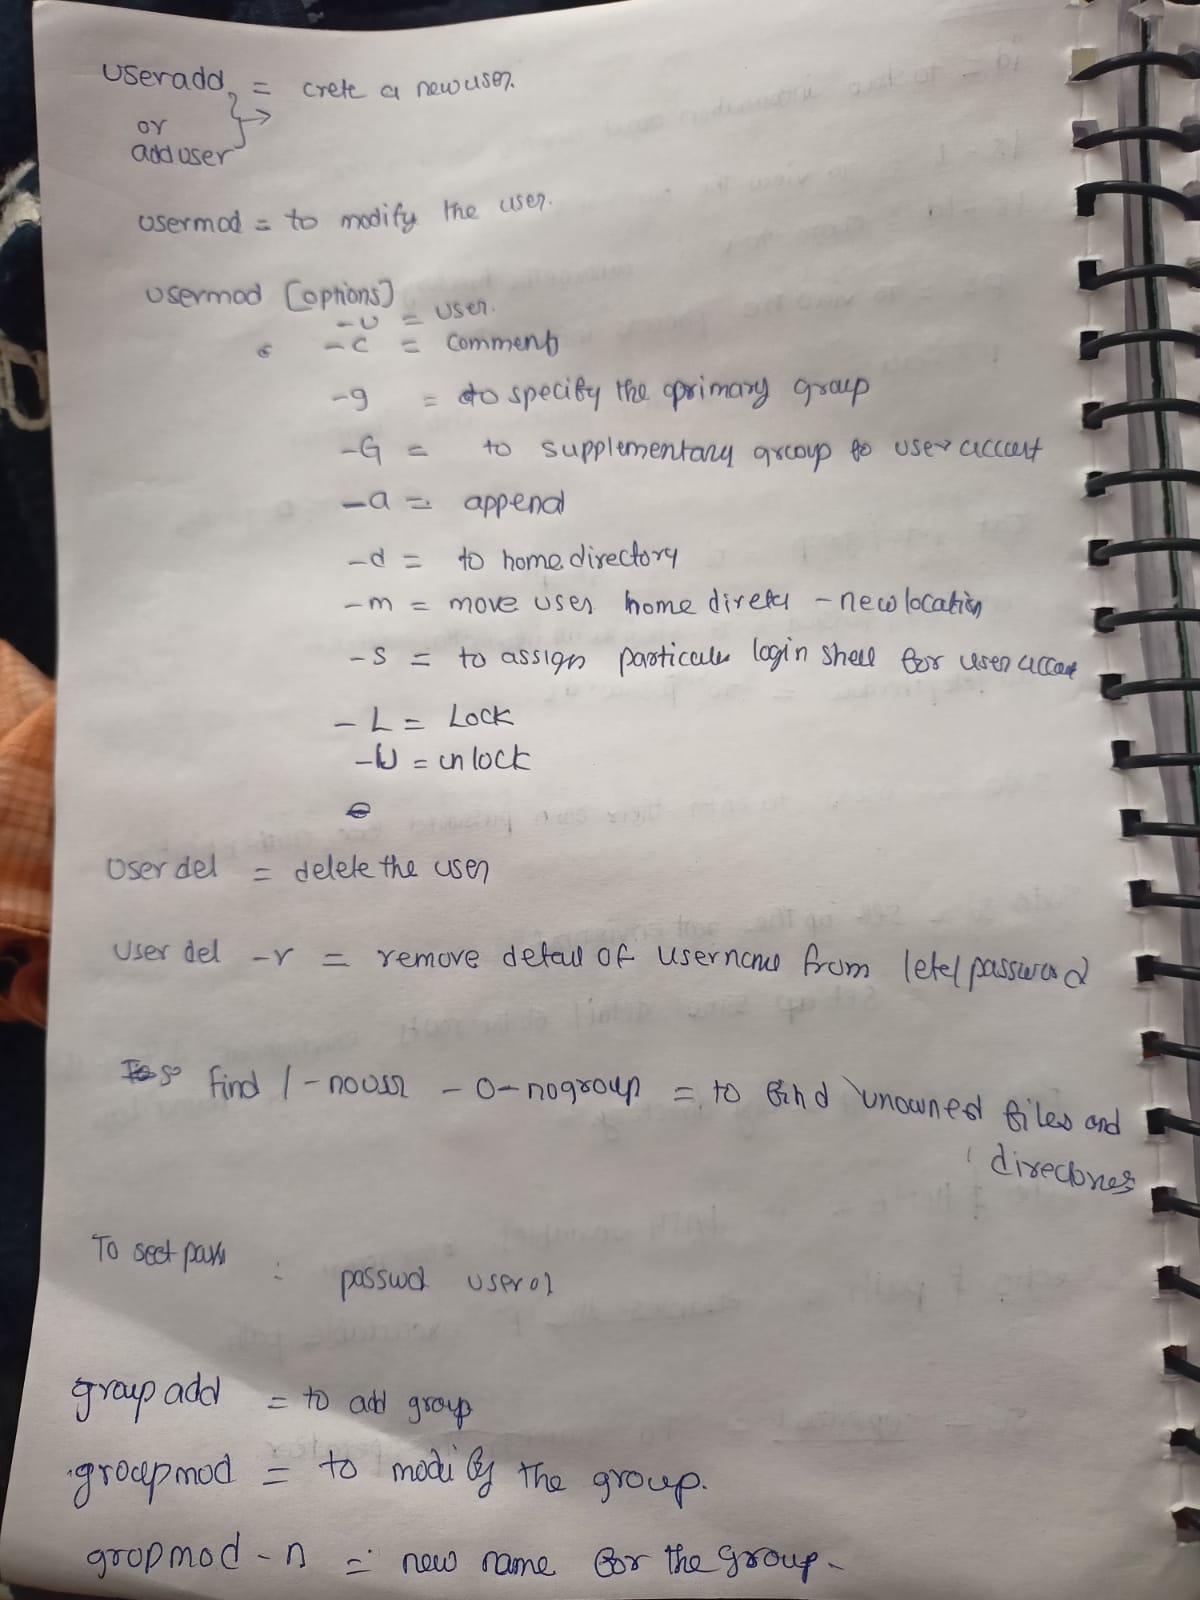 useradd = crete a new user.
or
adduser
usermod = to modify the user.
usermod [options]
-u = user.
-c = comments
-g = to specify the primary group
-G = to supplementary group to user account
-a = append
-d = to home directory
-m = move user home direct - new location
-s = to assign particular login shell for user account
- L = Lock
-U = unlock
User del = delete the user
User del -r = remove detail of username from /etc/password
find / -nouser -o-nogroup = to find unowned files and
directories
To sect pass : passwd user01
group add = to add group
groupmod = to modify the group.
gropmod - n = new name for the group.